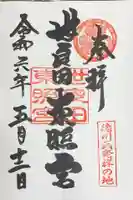 奉拝
世良田東照宮
令和六年五月十二日
徳川氏発祥の地